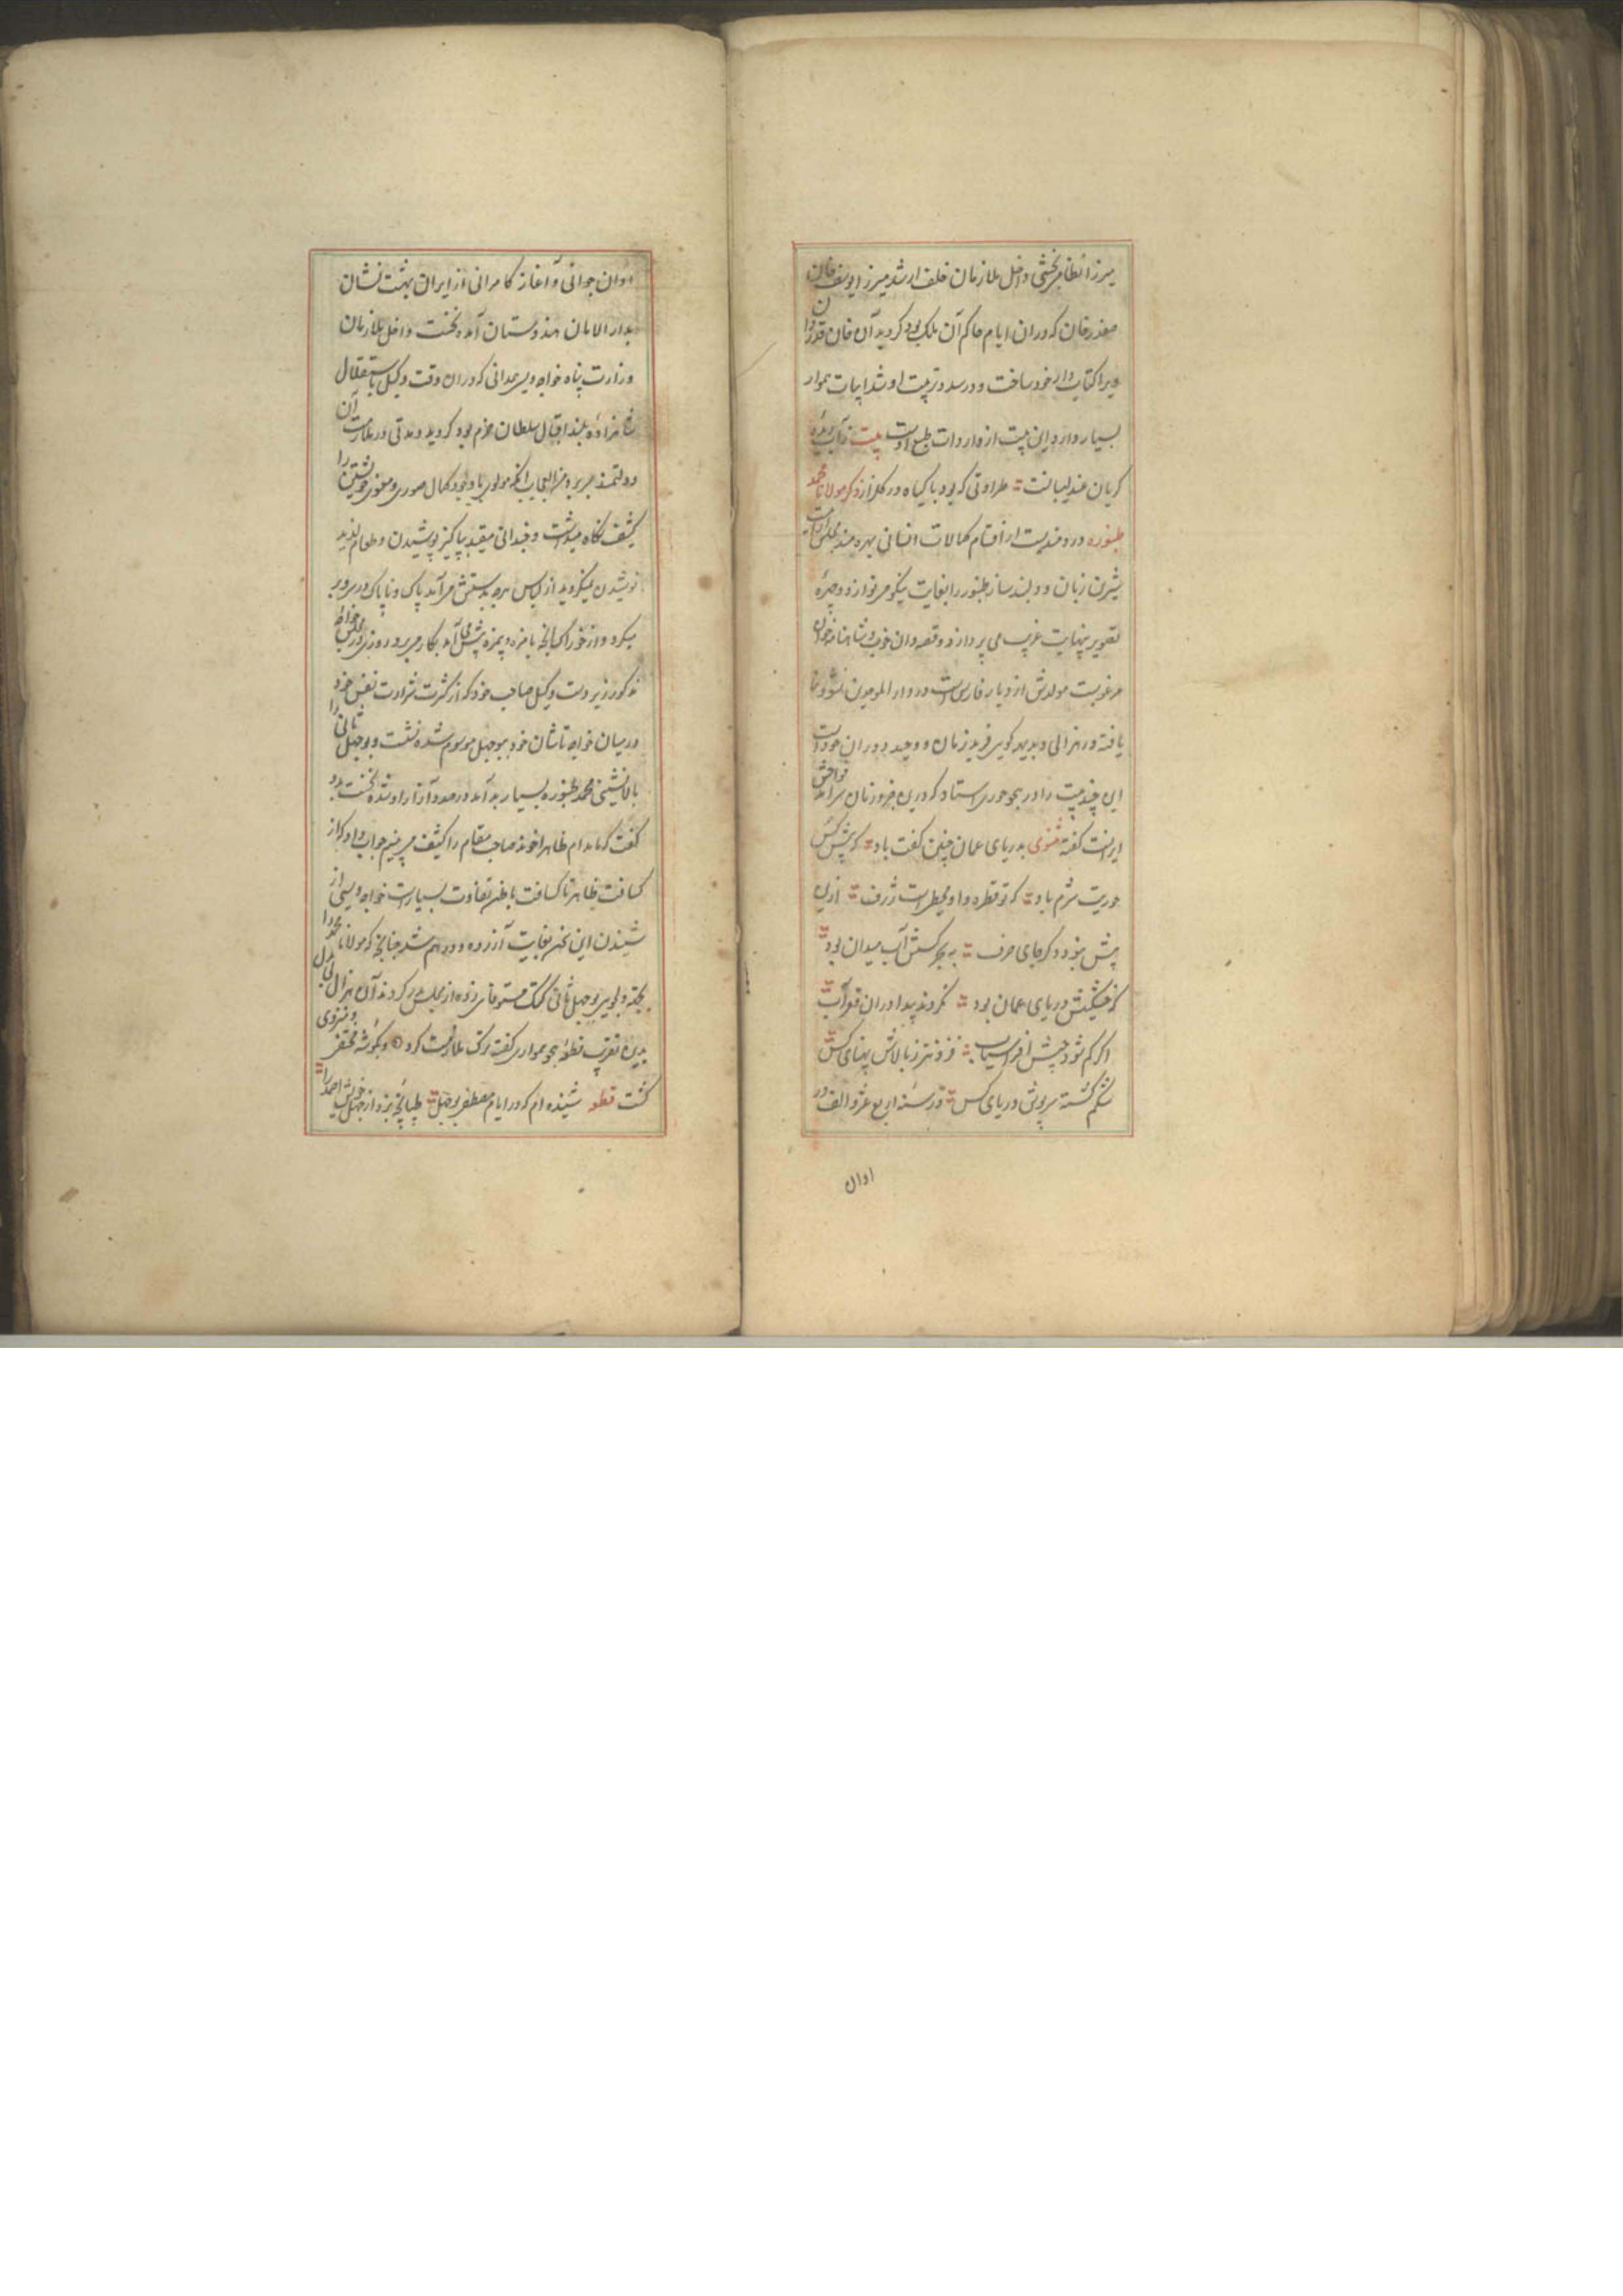 میرزا نظام بخشی داخل ملازمان خلف ارشد میرزا یوسف خان
صفدرخان که دران ایام حاکم آن ملک بود گردید آن خان قدردان
ویرا کتاب دار خود ساخت و در صدد تربیت او شد ابیات هموار
بسیار دارد این بیت از واردات طبع اوست بیت ز آب دیده
گریان عندلیبانست طراوتی که بود با گیاه در گلزار ذکر مولانا محمد
طنبوره دردمندیست از اقسام کمالات انسانی بهره مند
شیرین زبان و دلپند ساز طنبور را بغایت نیکو می نوازد و چهرهٔ
تصویر بنهایت غریب می پردازد و قصه دان خوب و شاهنامه خوان
مرغوبست مولدش از دیار فارس است در دار الموحدین نشو و نما
یافته در هزالی و بدیهه گویی فرید زمان و وحید دوران خود است
این چند بیت را در هجو حوری استاد که درین جزو زمان سرآمد نواحش
ایرانست گفته مثنوی بدریای عمان چنین گفت باد که پیش کس
حوریت شرم باد که تو قطره و او محیط است ژرف ازین
بیش نبود دگر جای حرف به بحر کسش آب میدان بود
که خشکیش دریای عمان بود نگردند پیدا دران قعر آب
اگر گم شود جیش افراسیاب فزونتر ز بالاش پهنای کس
شکم گشته سرپوش دریای کس در سنه اربع عشر و الف در
اوان
اوان جوانی و آغاز کامرانی از ایران بهشت نشان
بدار الامان هندوستان آمد و نخست داخل ملازمان
وزارت پناه خواجه ویسی همدانی که دران وقت وکیل باستقلال
شاهزادهٔ بلند اقبال سلطان خرم بود گردید و مدتی در ملازمت آن
دولتمند بسر برد من العجایب آنکه مولوی با وجود کمال صوری و معنوی خویشتن را
کثیف نگاه میداشت و چندانی مقید بپاکیزه پوشیدن و طعام لذیذ
نوشیدن نمیگردید از لباس هرچه بدستش می آمد پاک و ناپاک در بر
میکرد و از خوراک آنچه بامزه و بیمزه پیش می آمد بکار میبرد روزی در مجلس خواجهٔ
مذکور زیر دست وکیل صاحب خود که از کثرت شرارت نفس خود
در میان خواجه تاشان خود ببوجهل موسوم شده نشست و بوجهل ثانی را
بالانشینی محمد طنبوره بسیار بد آمد در صدد آزار او شده نخست بدو
گفت که مادام ظاهر اخوند صاحب مقام را کثیف می بینیم جواب داد که از
کثافت ظاهر تا کثافت باطن تفاوت بسیار است خواجه ویسی از
شنیدن این سخن بغایت آزرده و درهم شد چنانچه که مولانا محمد را
بگفتهٔ وی بوجهل ثانی کتک مستوفای زده از مجلس بدر کردند آن هزال بی بدل
بدین تقریب قطعهٔ هجو همواری گفت و ترک ملازمت کرد و بگوشهٔ مختفی و منزوی
گشت قطعه شنیده ام که در ایام مصطفی بوجهل طپانچه بزد از جهل خویش احمد را